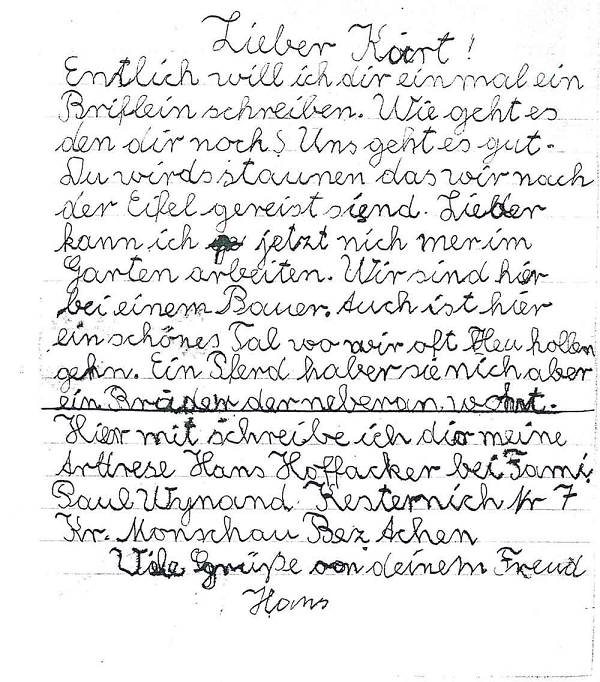 Lieber Kört!
Entlich will ich dir einmal ein
Briflein schreiben. Wie geht es
den dir noch? Uns geht es gut.
Du wirds staunen das wir nach
der Eifel gereist siend. Lieder
kann ich jetzt nich mer im
Garten arbeiten. Wir sind hir
bei einem Bauer. Auch ist hier
ein schönes Tal wo wir oft Heu hollen
gehn. Ein Pferd haber sie nich aber
ein Bruder der neberan wohnt.
Hier mit schreibe ich dir meine
Arttrese Hans Hoffacker bei Fami.
Paul Wynand Kesternich Nr 7
Kr. Monschau Bez Achen
Viele Grüße von deinem Freud
Hans